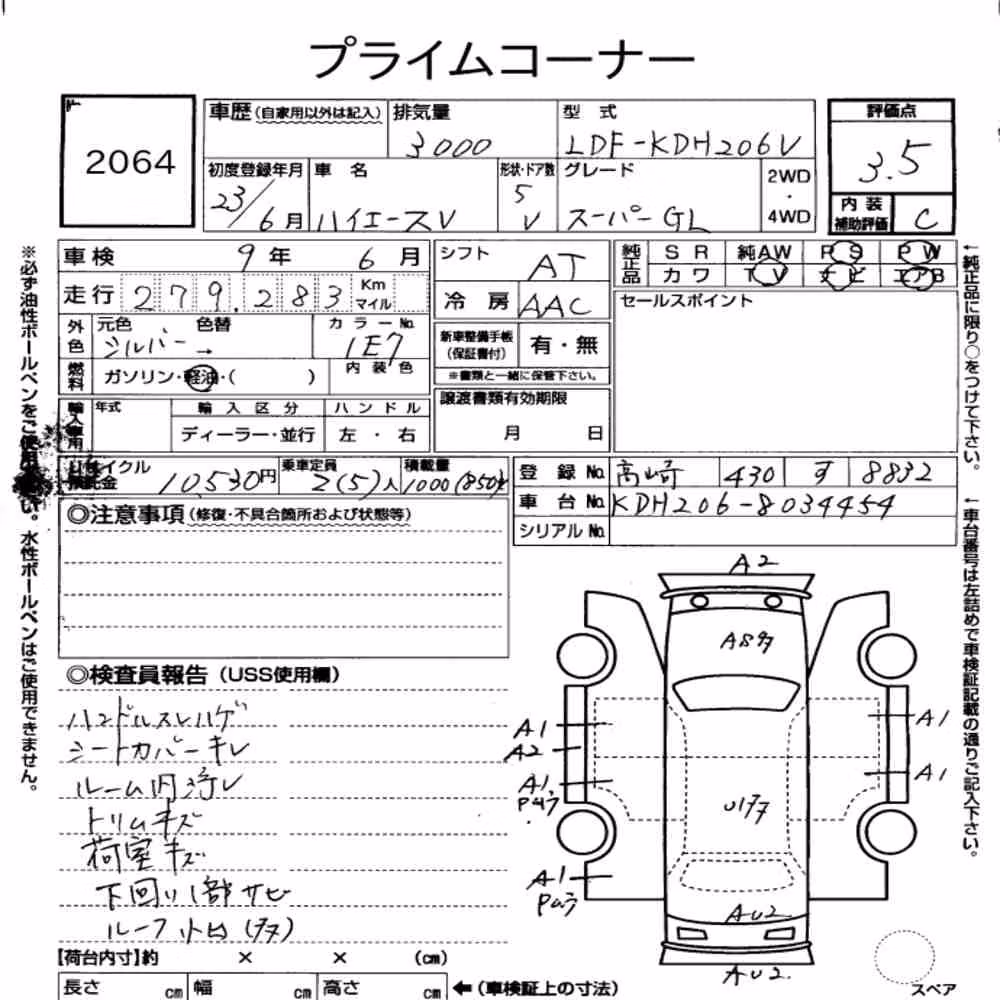 プライムコーナー
2064
車歴(自家用以外は記入) 排気量 型 式 評価点
3000 LDF-KDH206V 3.5
初度登録年月 車 名 形状・ドア数 グレード 2WD・4WD
23/6月 ハイエースV 5 V スーパーGL
内装補助評価 C
車検 9年 6月 シフト AT
純正品 SR 純AW PS PW
カワ TV ナビ エアB
走行 279,283 Km マイル 冷房 AAC
セールスポイント
外色 元色 色替 カラーNo.
シルバー → 1E7
新車整備手帳(保証書付) 有・無
※書類と一緒に保管下さい。
燃料 ガソリン・軽油・( ) 内装色
譲渡書類有効期限
月 日
輸入車用 年式 輸入区分 ハンドル
ディーラー・並行 左・右
リサイクル預託金 10,530円 乗車定員 2(5)人 積載量 1000(850)
登録No. 高崎 430 す 8832
車台No. KDH206-8034454
シリアルNo.
◎注意事項(修復・不具合箇所および状態等)
◎検査員報告(USS使用欄)
ハンドルスレハゲ
シートカバーキレ
ルーム内汚レ
トリムキズ
荷室キズ
下回り1部サビ
ルーフ凹(タタ)
A2
Aタタ
A1
A2
A1
A1
A1
Uタタ
A1
AU2
AU2
スペア
【荷台内寸】約 × × (cm)
長さ cm 幅 cm 高さ cm ←(車検証上の寸法)
※必ず油性ボールペンをご使用下さい。水性ボールペンはご使用できません。
↑純正品に限り○をつけて下さい。
↑車台番号は左詰めで車検証記載の通りご記入下さい。